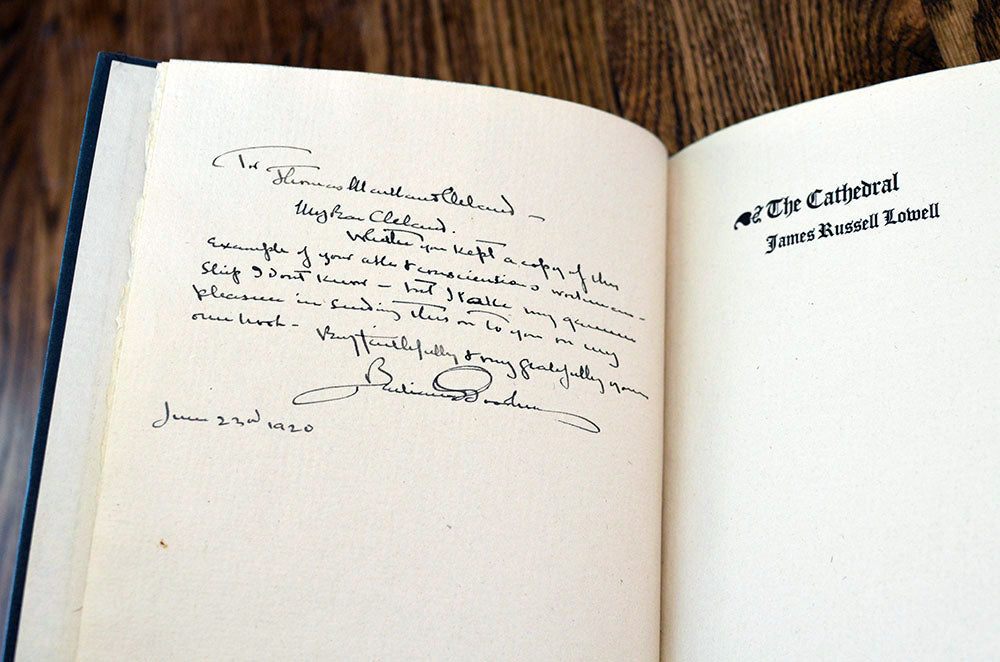 To
Thomas Maitland Cleland –
My Dear Cleland.
Whether you kept a copy of this
example of your able & conscientious workman-
ship I dont know – but I take very genuine
pleasure in sending this on to you on my
own hook –
Very faithfully & very gratefully yours
Bertram Goodhue
June 23rd 1920
The Cathedral
James Russell Lowell